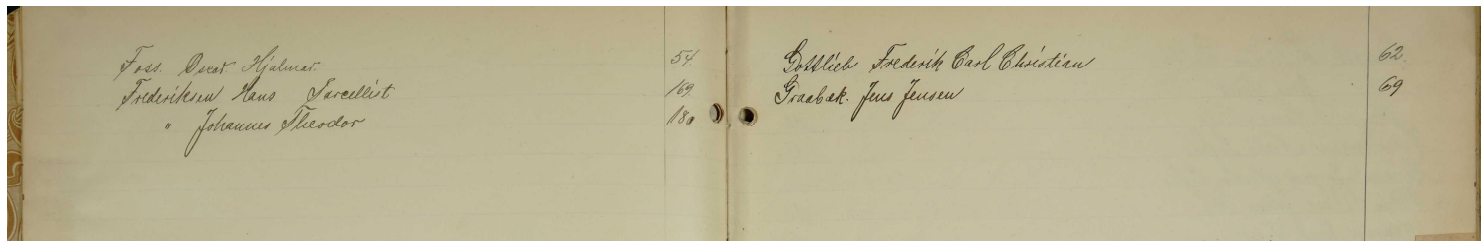 Foss. Oscar Hjalmar. 54
Frederiksen Hans Parcellist 169
" Johannes Theodor 180
Gottlieb Frederik Carl Christian 62
Graabæk. Jens Jensen 69